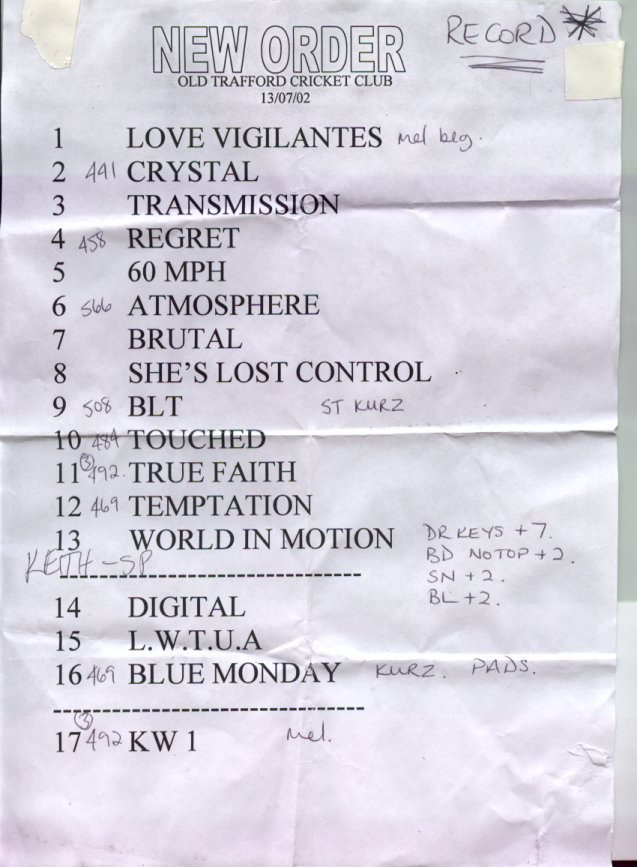 NEW ORDER
RECORD *
OLD TRAFFORD CRICKET CLUB
13/07/02
1 LOVE VIGILANTES mel beg.
2 441 CRYSTAL
3 TRANSMISSION
4 458 REGRET
5 60 MPH
6 566 ATMOSPHERE
7 BRUTAL
8 SHE'S LOST CONTROL
9 508 BLT ST KURZ
10 484 TOUCHED
11 (3) 492. TRUE FAITH
12 469 TEMPTATION
13 WORLD IN MOTION DR KEYS +7.
BD NOTOP +2.
KEITH - SP
SN +2.
BL +2.
14 DIGITAL
15 L.W.T.U.A
16 469 BLUE MONDAY KURZ. PADS.
17 (3) 492 KW 1 mel.